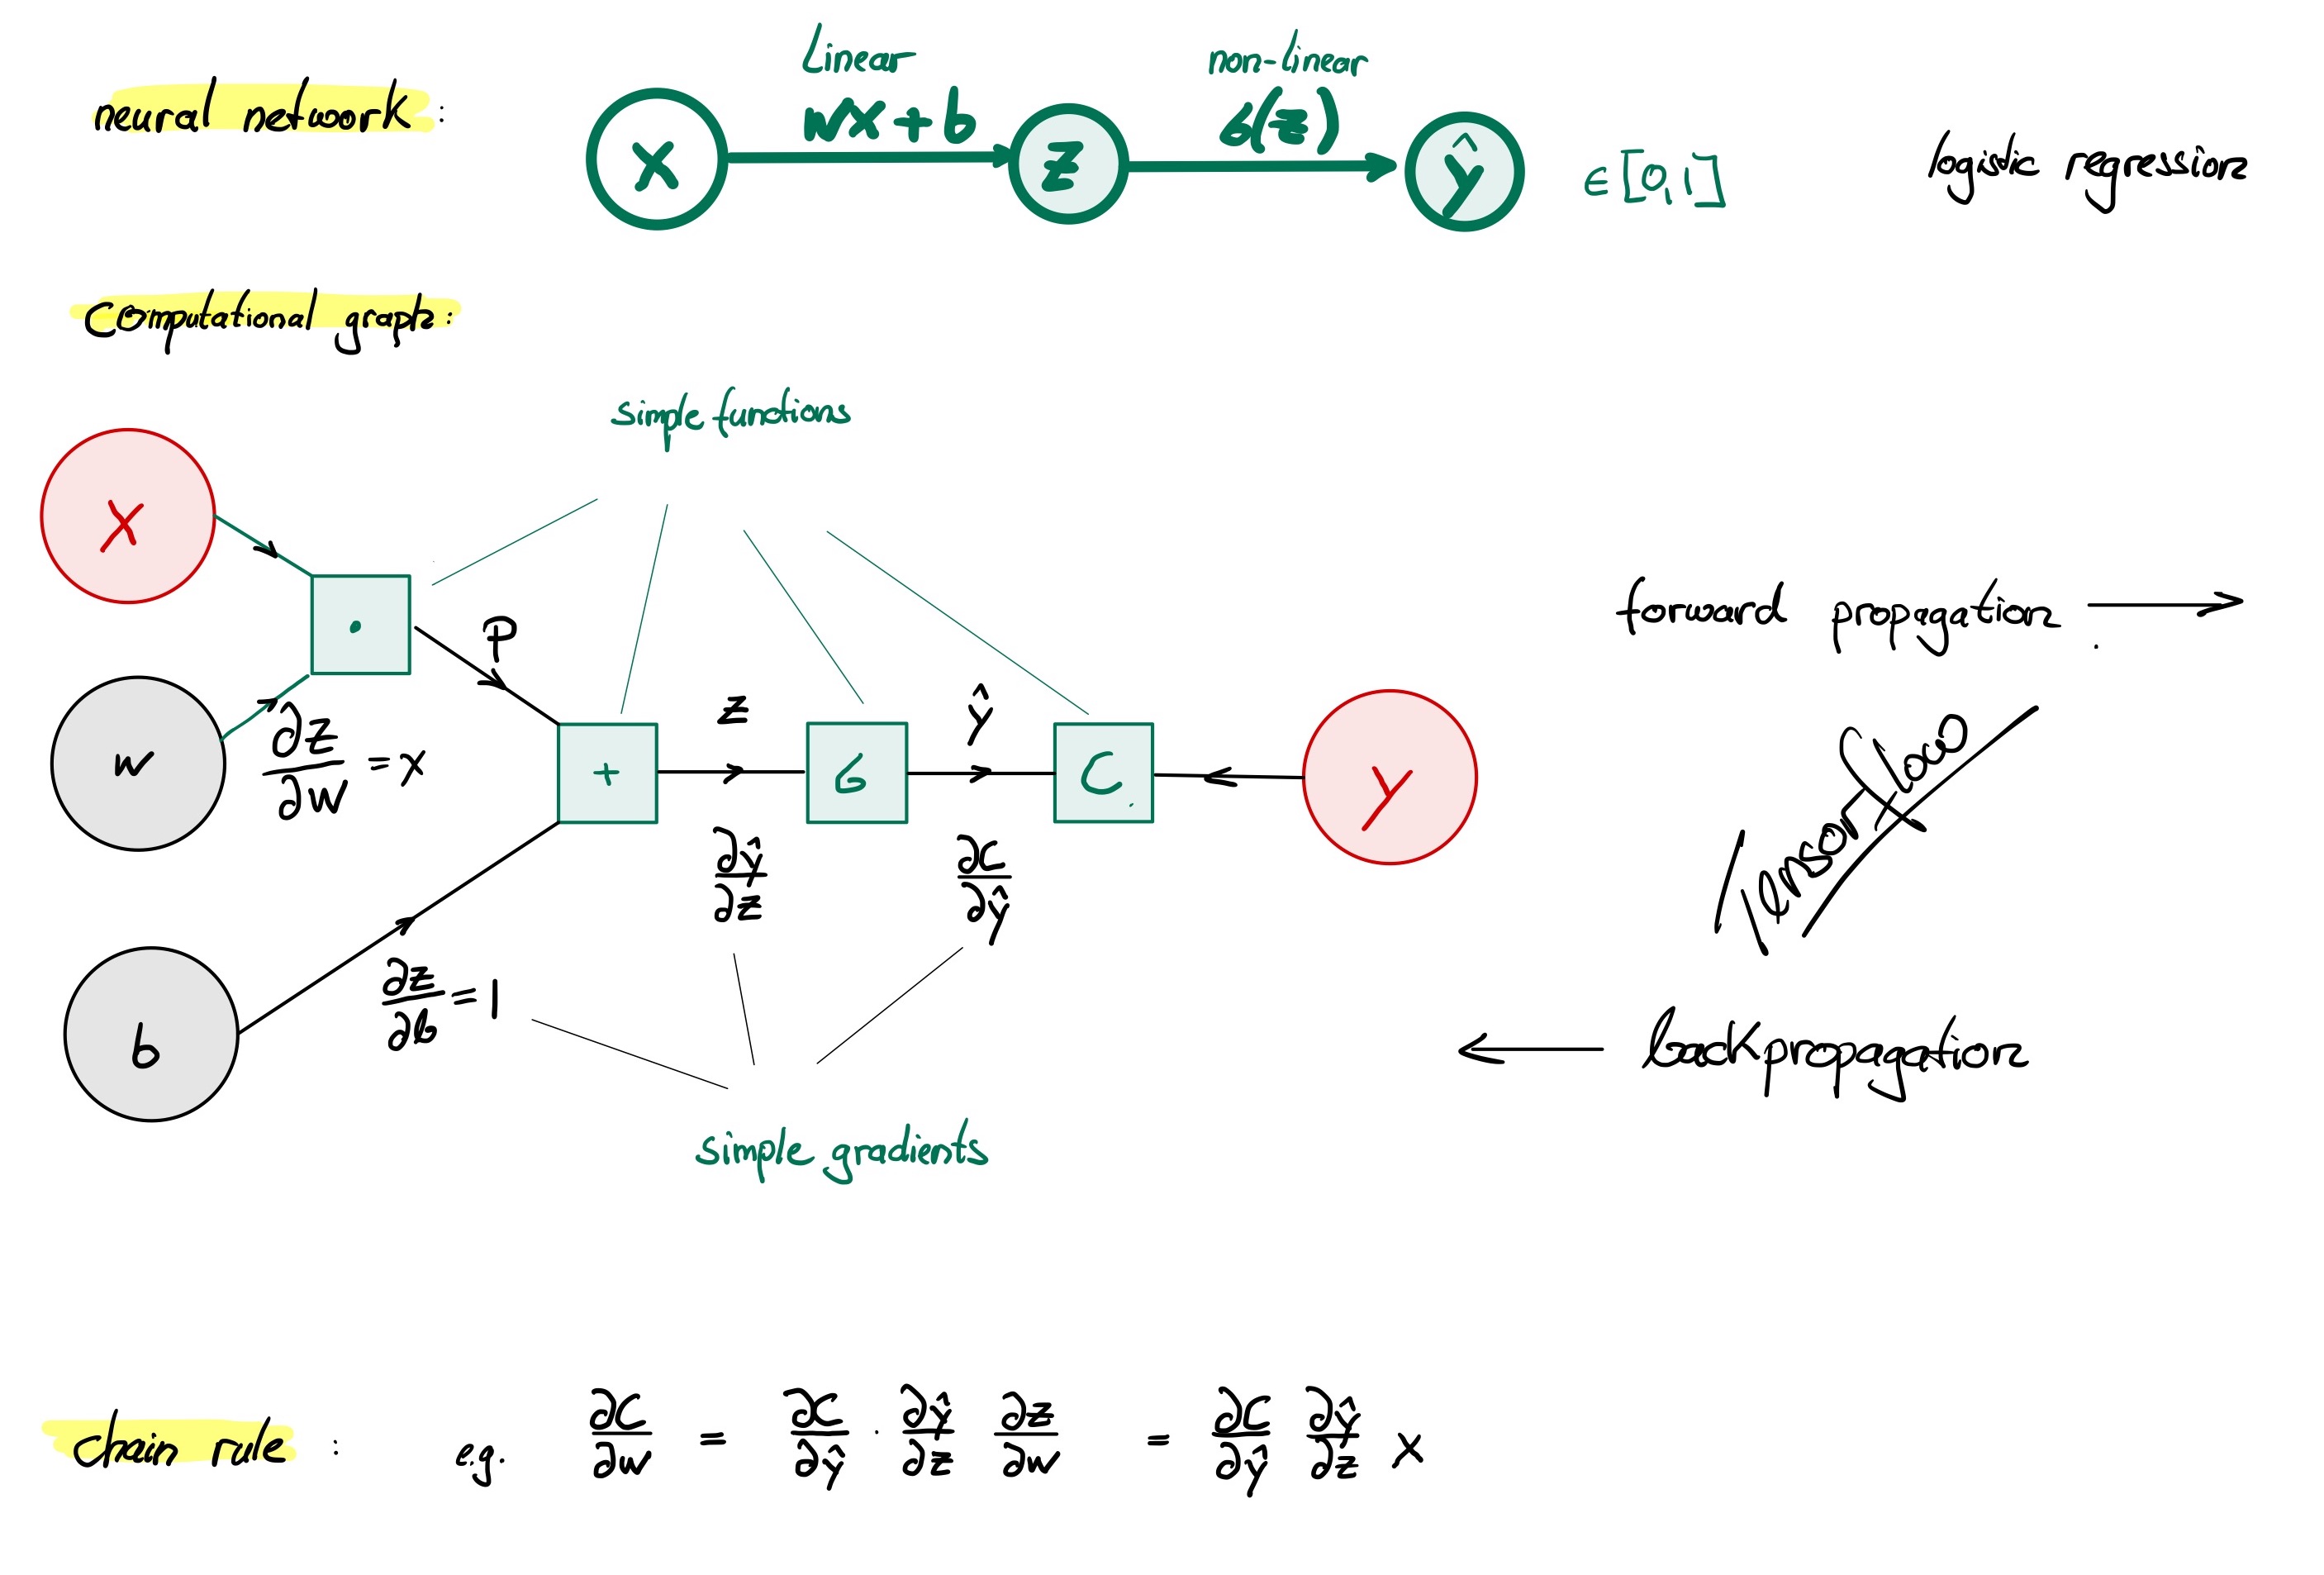 neural network :
Linear
wx + b
non-linear
σ(z)
x
z
ŷ
∈ [0,1]
logistic regression
Computational graph :
simple functions
x
·
p
w
∂z/∂w = x
+
z
σ
ŷ
C
y
∂ŷ/∂z
∂C/∂ŷ
b
∂z/∂b = 1
simple gradients
forward propagation
Tensorflow
backpropagation
chain rule : e.g. ∂C/∂w = ∂C/∂ŷ · ∂ŷ/∂z ∂z/∂w = ∂C/∂ŷ ∂ŷ/∂z x